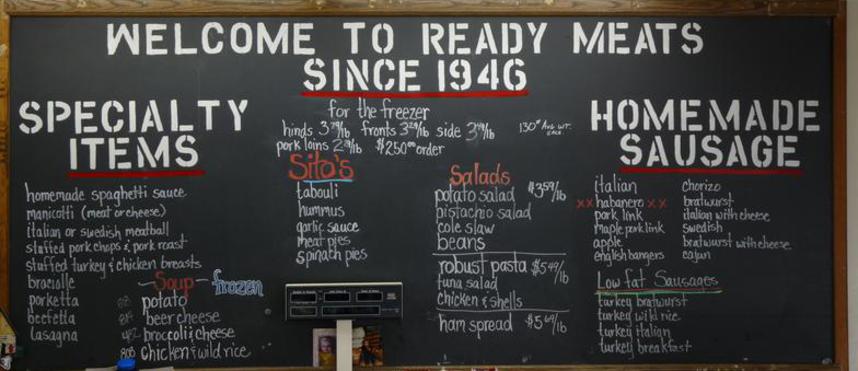 WELCOME TO READY MEATS
SINCE 1946
SPECIALTY
ITEMS
homemade spaghetti sauce
manicotti (meat or cheese)
italian or swedish meatball
stuffed pork chops & pork roast
stuffed turkey & chicken breasts
braciolle
porketta
beefetta
lasagna
Soup - frozen
potato
beer cheese
broccoli & cheese
chicken & wild rice
for the freezer
hinds 3 /lb fronts 3 /lb side 3 /lb
130# Avg. WT.
pork loins 2 /lb $250.00 order
Sito's
tabouli
hummus
garlic sauce
meat pies
spinach pies
Salads
potato salad $3.59/lb
pistachio salad
cole slaw
beans
robust pasta $5.49/lb
tuna salad
chicken & shells
ham spread $5.69/lb
HOMEMADE
SAUSAGE
italian
xx habanero xx
pork link
maple pork link
apple
english bangers
chorizo
bratwurst
italian with cheese
swedish
bratwurst with cheese
cajun
Low fat Sausages
turkey bratwurst
turkey wild rice
turkey italian
turkey breakfast